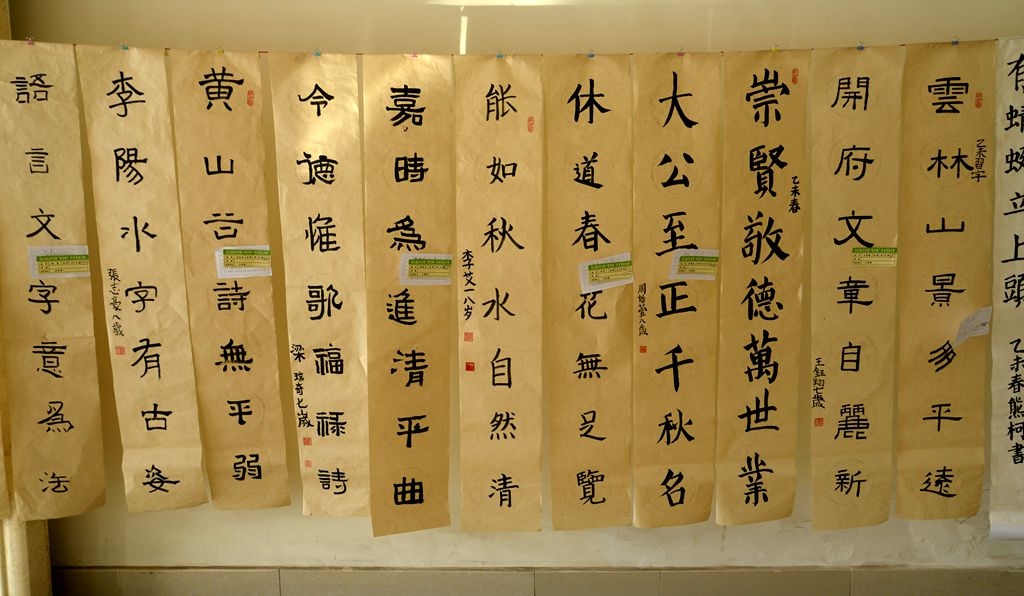 有蜻蜓立上頭
乙未春熊柯書
雲林山景多平遠
開府文章自麗新
崇賢敬德萬世業
乙未春
大公至正千秋名
周怡萱八歲
休道春花無足覽
能如秋水自然清
李艾一八岁
嘉時為進清平曲
令德惟歌福祿詩
梁瑞奇七歲
黄山谷詩無平弱
李陽氷字有古姿
張志豪八歲
語言文字意為法